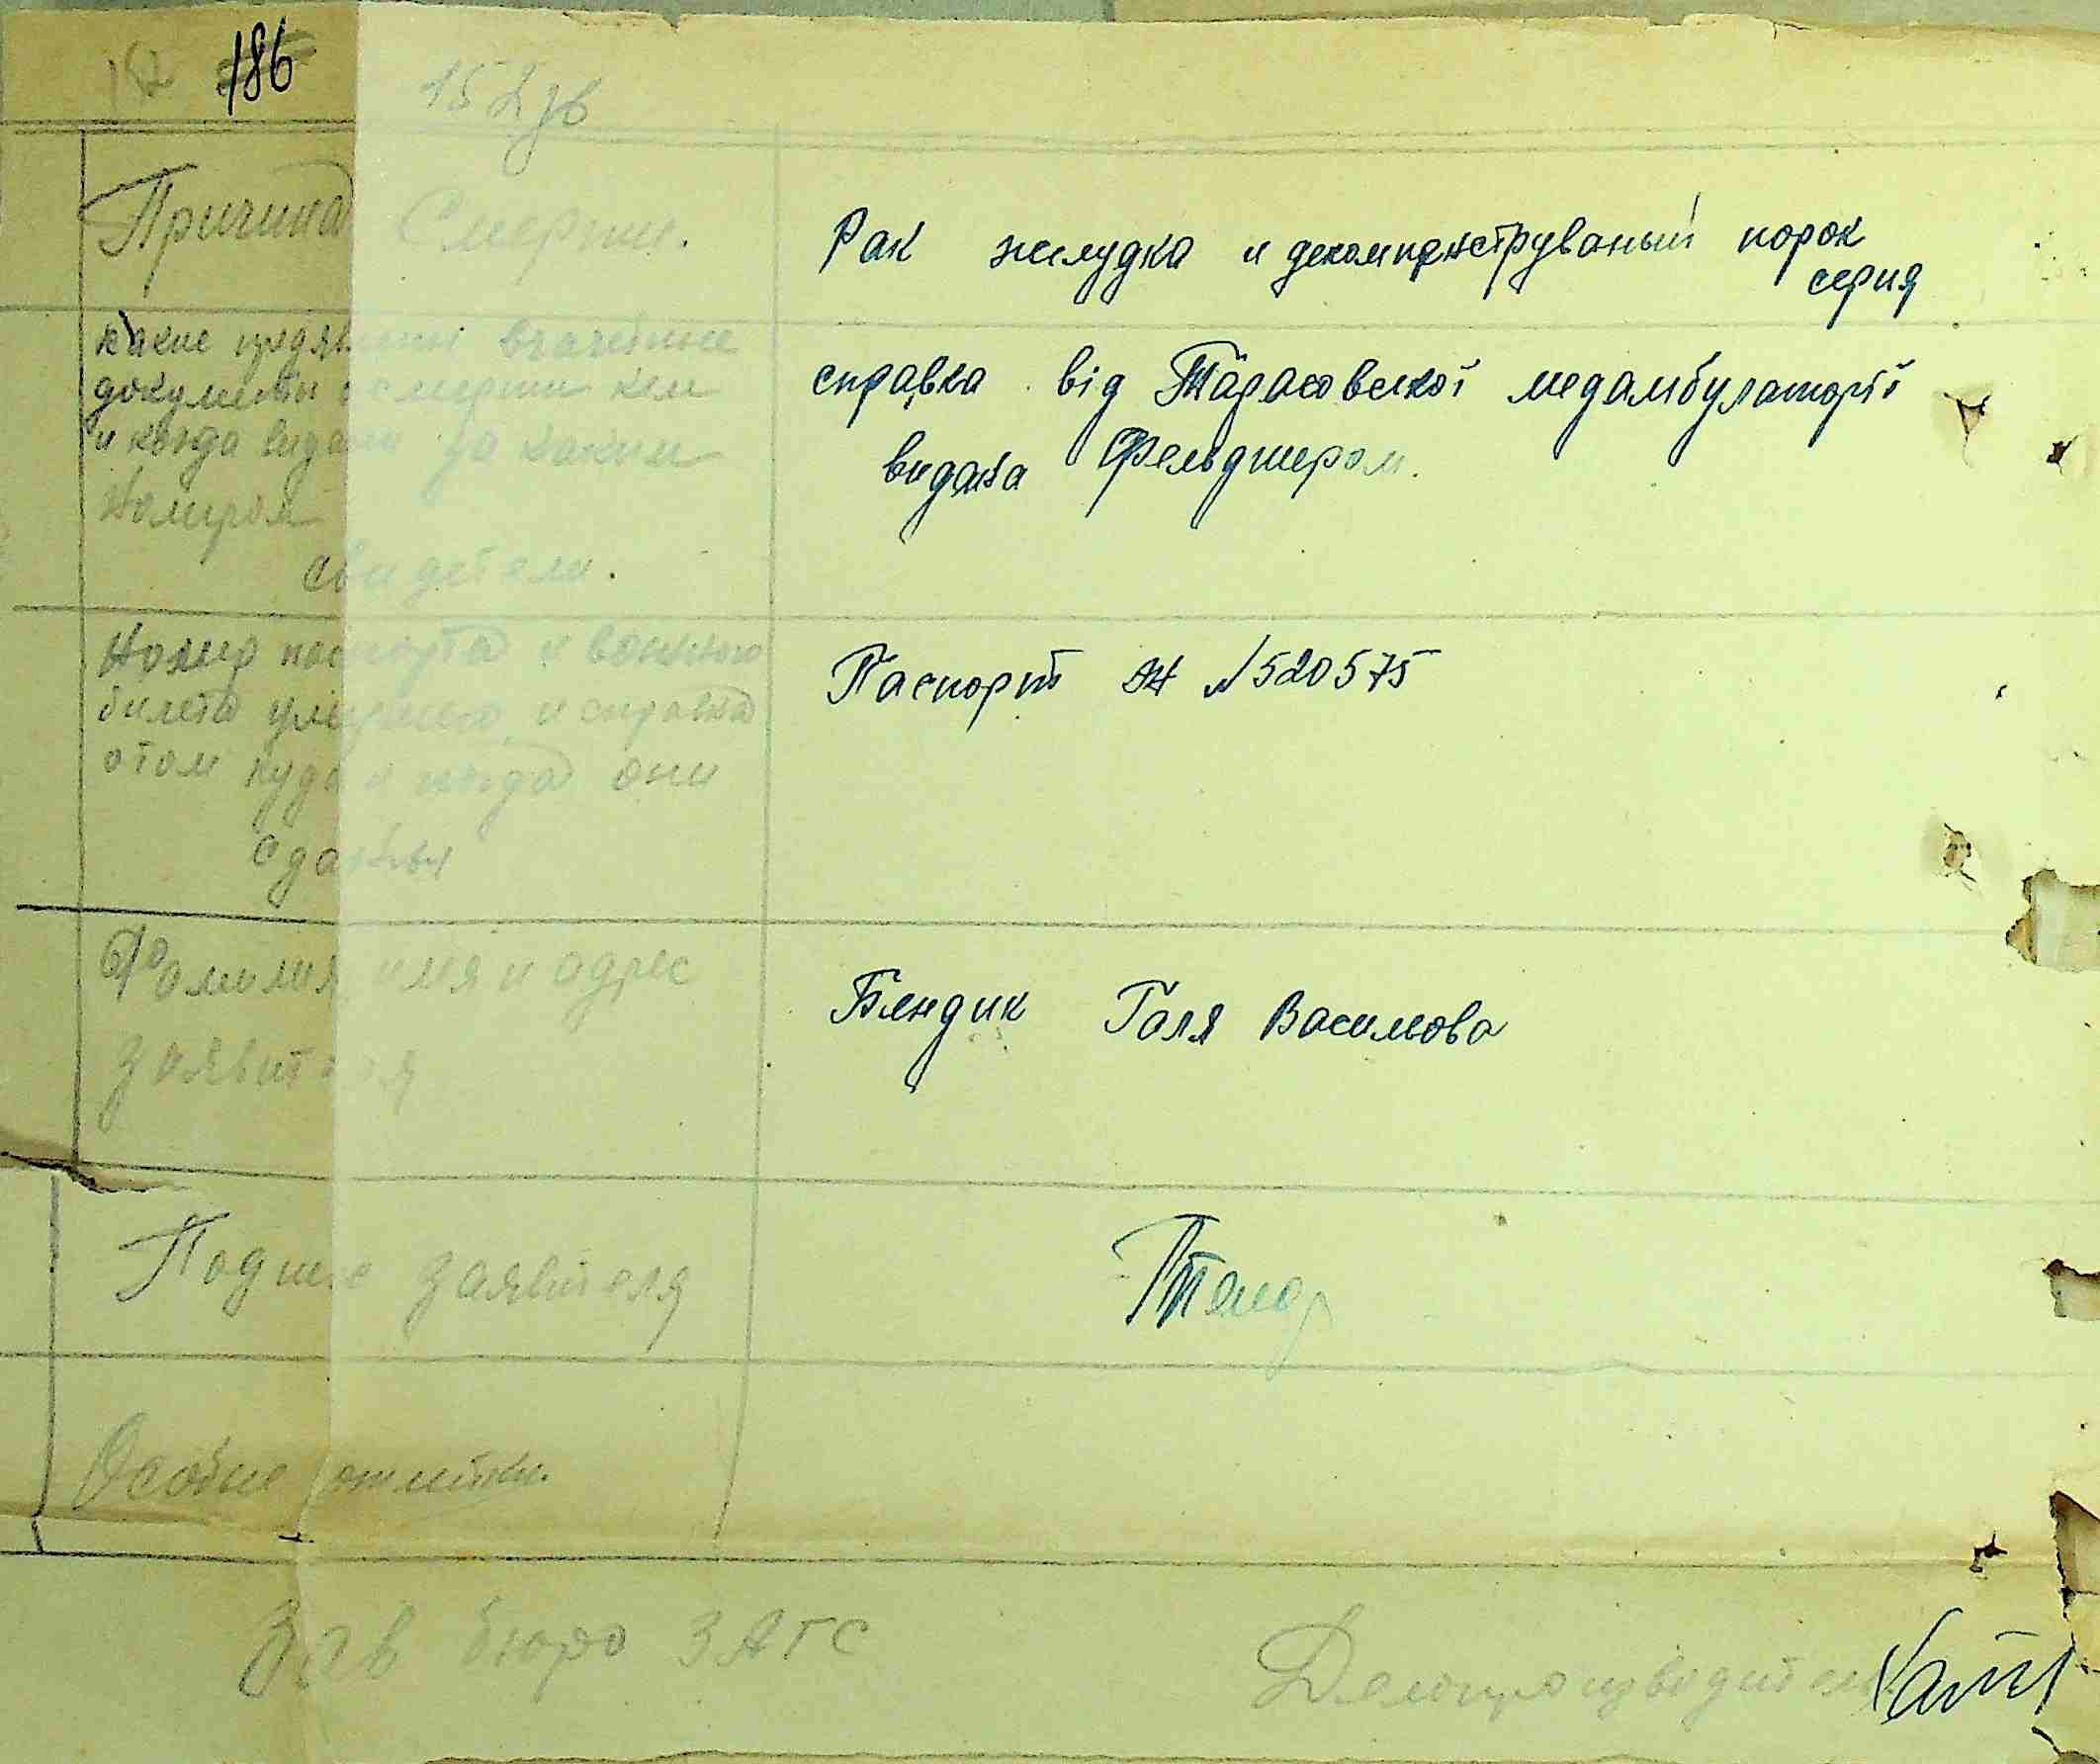 186
152 зв
Причина Смерти.
Рак желудка и декомпенструваный порок
серия
какие предявлены врачебные
документы о смерти кем
и когда видани за каким
Номиром
свидетели.
справка від Тарасовської медамбулаторії
видана Фельдшером.
Номир паспорта и военного
билета умершего и справка
отом куда и когда они
сданы
Паспорт ЖЖ №520575
Фамилия имя и адрес
заявителя
Бендик Галя Васильова
Подпис заявителя
Особые отметки
Зав бюро ЗАГС
Делопроизводитель